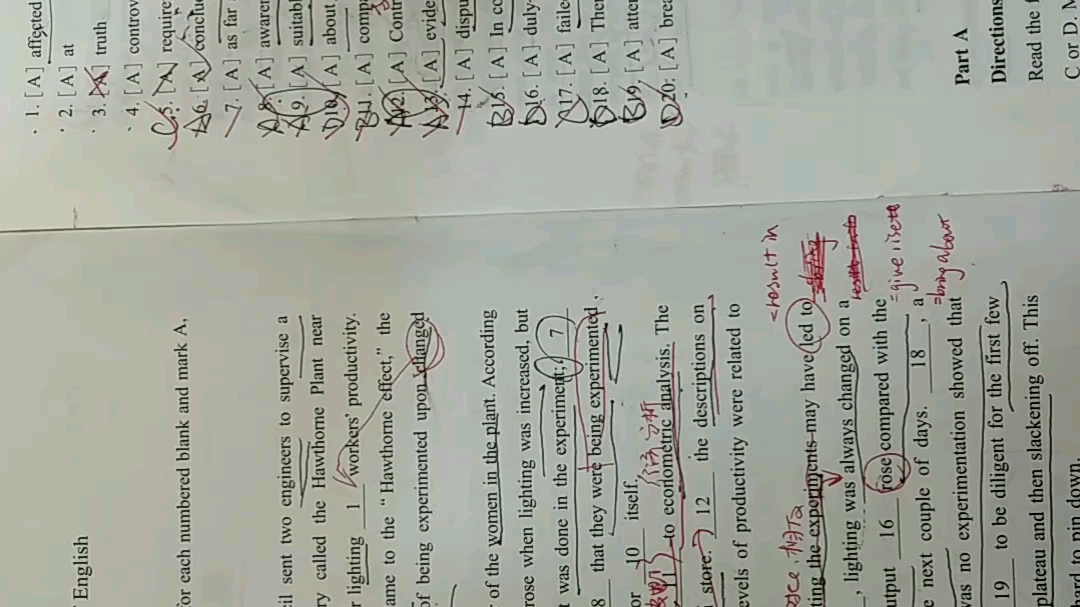 English
for each numbered blank and mark A,
cil sent two engineers to supervise a
ry called the Hawthorne Plant near
r lighting 1 workers' productivity.
ame to the "Hawthorne effect," the
of being experimented upon changed
of the women in the plant. According
rose when lighting was increased, but
t was done in the experiment; 7
8 that they were being experimented
or 10 itself.
分析
to econometric analysis. The
store. 12 the descriptions on
evels of productivity were related to
=result in
ting the experiments may have led to
, lighting was always changed on a
utput 16 rose compared with the
=give rise to
e next couple of days. 18 , a
=bring about
was no experimentation showed that
19 to be diligent for the first few
plateau and then slackening off. This
hard to pin down.
1. [A] affected
2. [A] at
3. [A] truth
4. [A] controv
C 5. [A] require
A 6. [A] conclu
7. [A] as far
8. [A] awaren
A 9. [A] suitabl
D 10. [A] about
B 11. [A] compa
A 12. [A] Contr
A 13. [A] evide
14. [A] dispu
B 15. [A] In co
D 16. [A] duly
C 17. [A] failed
D 18. [A] Ther
B 19. [A] atten
D 20. [A] brea
Part A
Directions
Read the
C or D. M